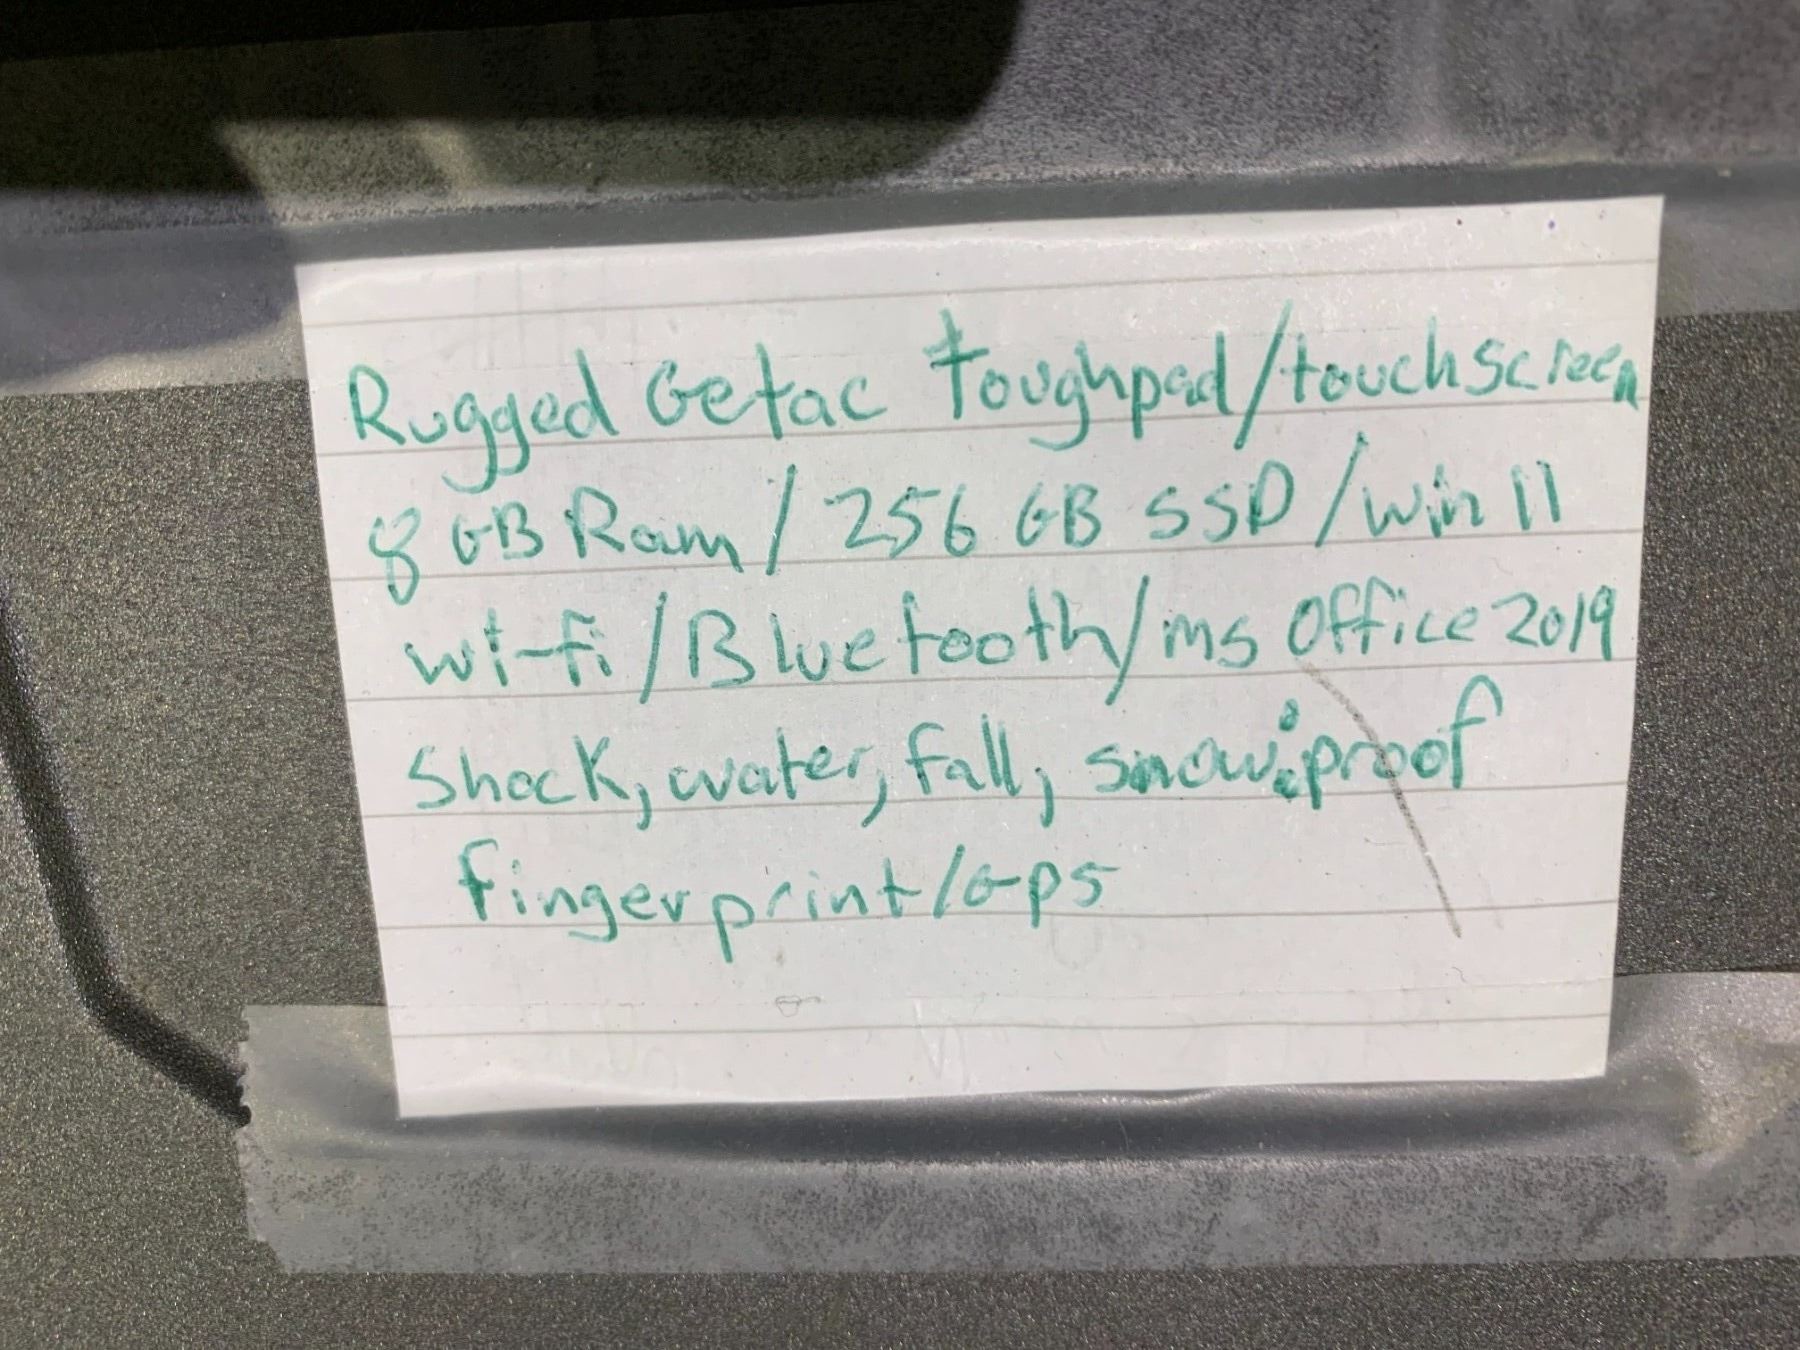 Rugged Getac Toughpad/touchscreen
8 GB Ram/256 GB SSD/Win 11
Wi-fi/Bluetooth/ms Office 2019
Shock, water, fall, snow:proof
fingerprint/GPS